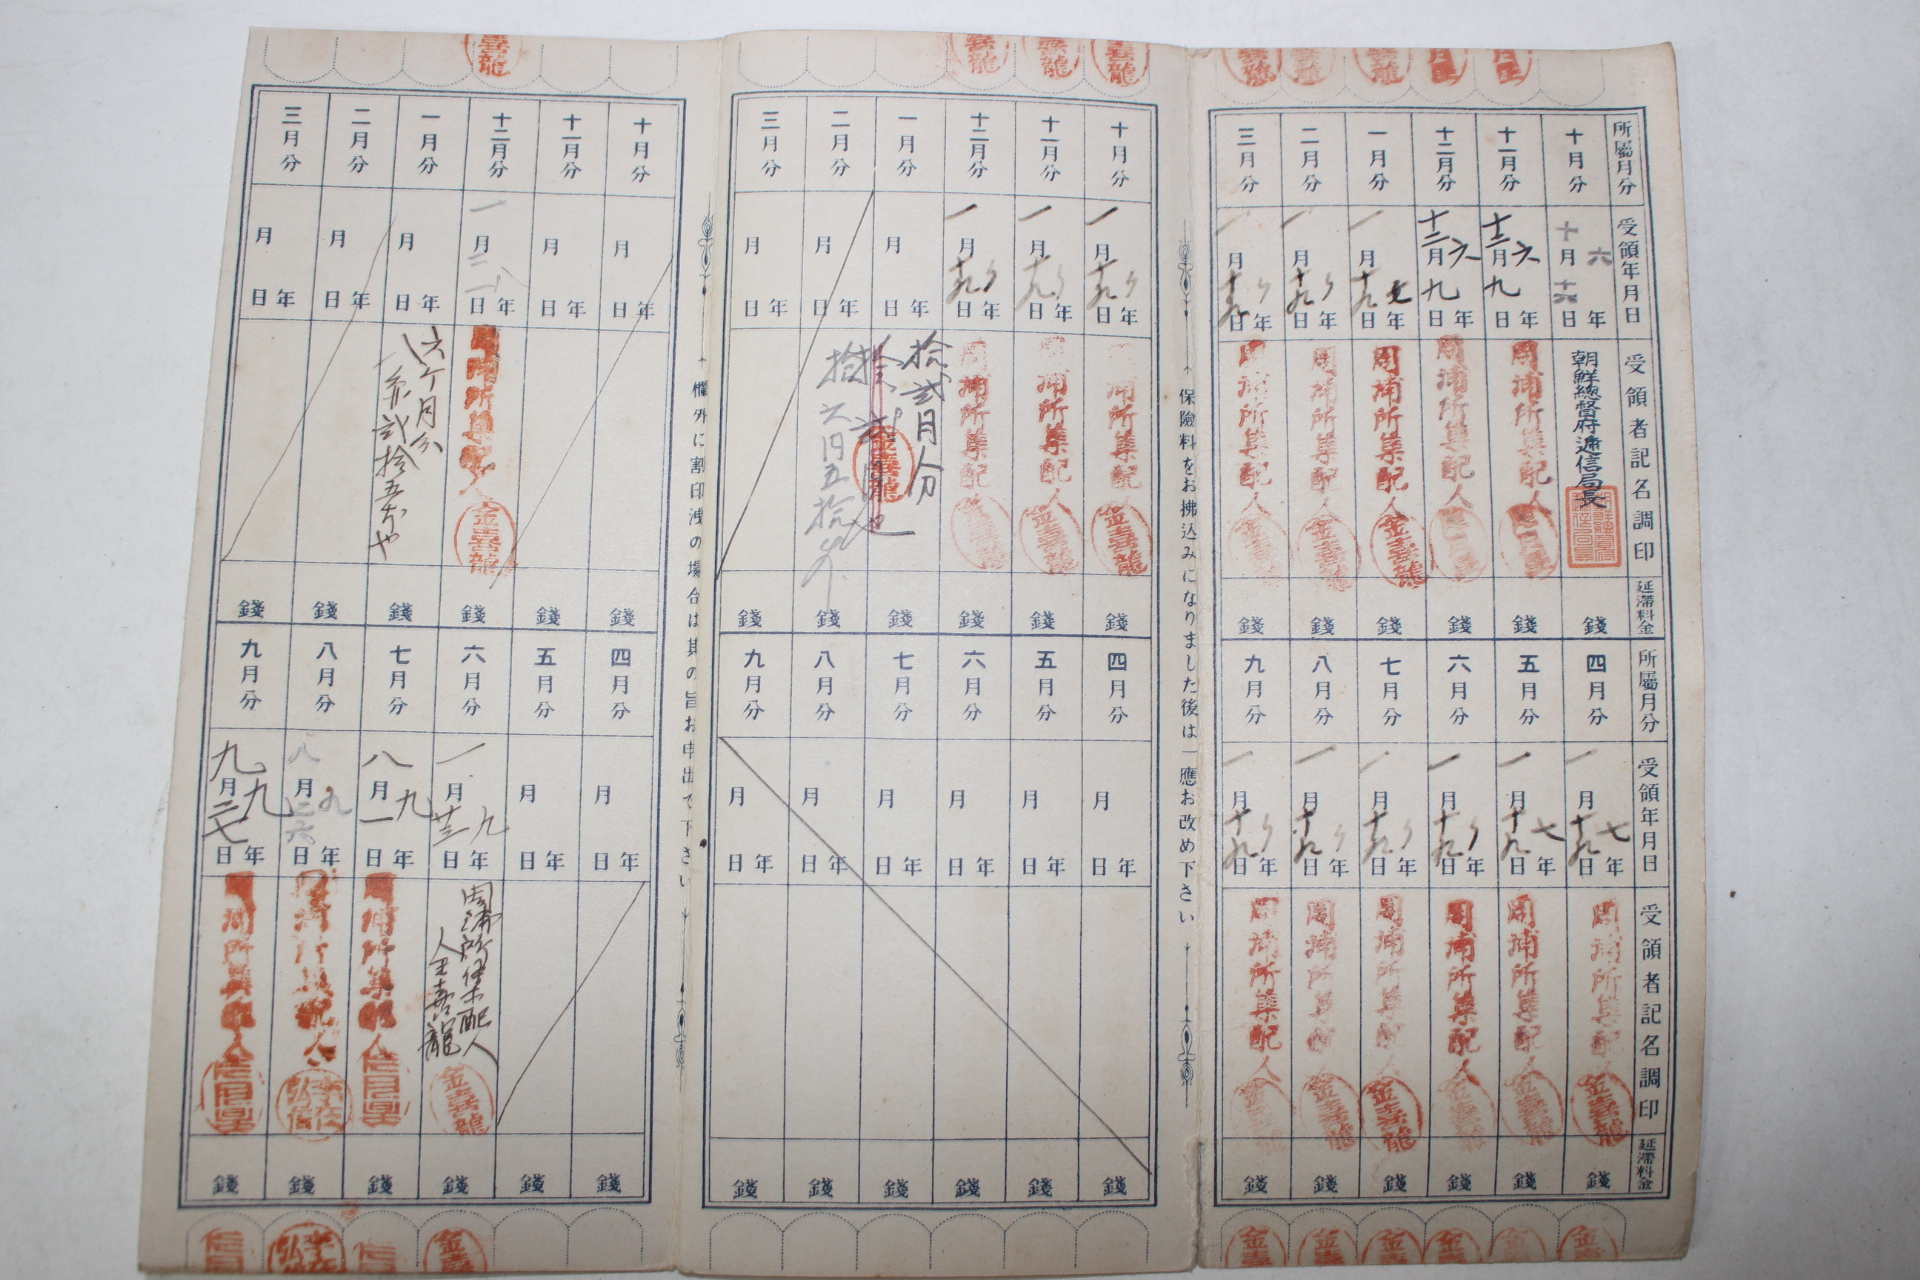 所屬月分
受領年月日
受領者記名調印
延滯料金
十月分
十月十六日六年
朝鮮總督府遞信局長
錢
十一月分
十二月九日六年
周浦所集配人
錢
十二月分
十二月九日六年
周浦所集配人
錢
一月分
一月十九日七年
周浦所集配人
金喜龍
錢
二月分
一月十九日〃年
周浦所集配人
金喜龍
錢
三月分
一月十九日〃年
周浦所集配人
金喜龍
錢
所屬月分
受領年月日
受領者記名調印
延滯料金
四月分
一月十九日七年
周浦所集配人
金喜龍
錢
五月分
一月十九日七年
周浦所集配人
金喜龍
錢
六月分
一月十九日〃年
周浦所集配人
金喜龍
錢
七月分
一月十九日〃年
周浦所集配人
金喜龍
錢
八月分
一月十九日〃年
周浦所集配人
金喜龍
錢
九月分
一月十九日〃年
周浦所集配人
金喜龍
錢
保險料をお拂込みになりました後は一應お改め下さい
十月分
一月十九日〃年
周浦所集配人
金喜龍
錢
十一月分
一月十九日〃年
周浦所集配人
金喜龍
錢
十二月分
一月十九日〃年
周浦所集配人
金喜龍
錢
一月分
月 日 年
拾貳月分
金喜龍
錢
二月分
月 日 年
拾六円五拾
錢
三月分
月 日 年
錢
四月分
月 日 年
錢
五月分
月 日 年
錢
六月分
月 日 年
錢
七月分
月 日 年
錢
八月分
月 日 年
錢
九月分
月 日 年
錢
欄外に割印洩の場合は其の旨お申出で下さい
十月分
月 日 年
錢
十一月分
月 日 年
錢
十二月分
一月二一日八年
周浦所集配人
金喜龍
錢
一月分
月 日 年
六ヶ月分
錢
二月分
月 日 年
錢
三月分
月 日 年
錢
四月分
月 日 年
錢
五月分
月 日 年
錢
六月分
一月廿三日九年
周浦所集配人
金喜龍
金喜龍
錢
七月分
八月一日九年
周浦所集配人
錢
八月分
八月二六日九年
周浦所集配人
錢
九月分
九月二七日九年
周浦所集配人
錢